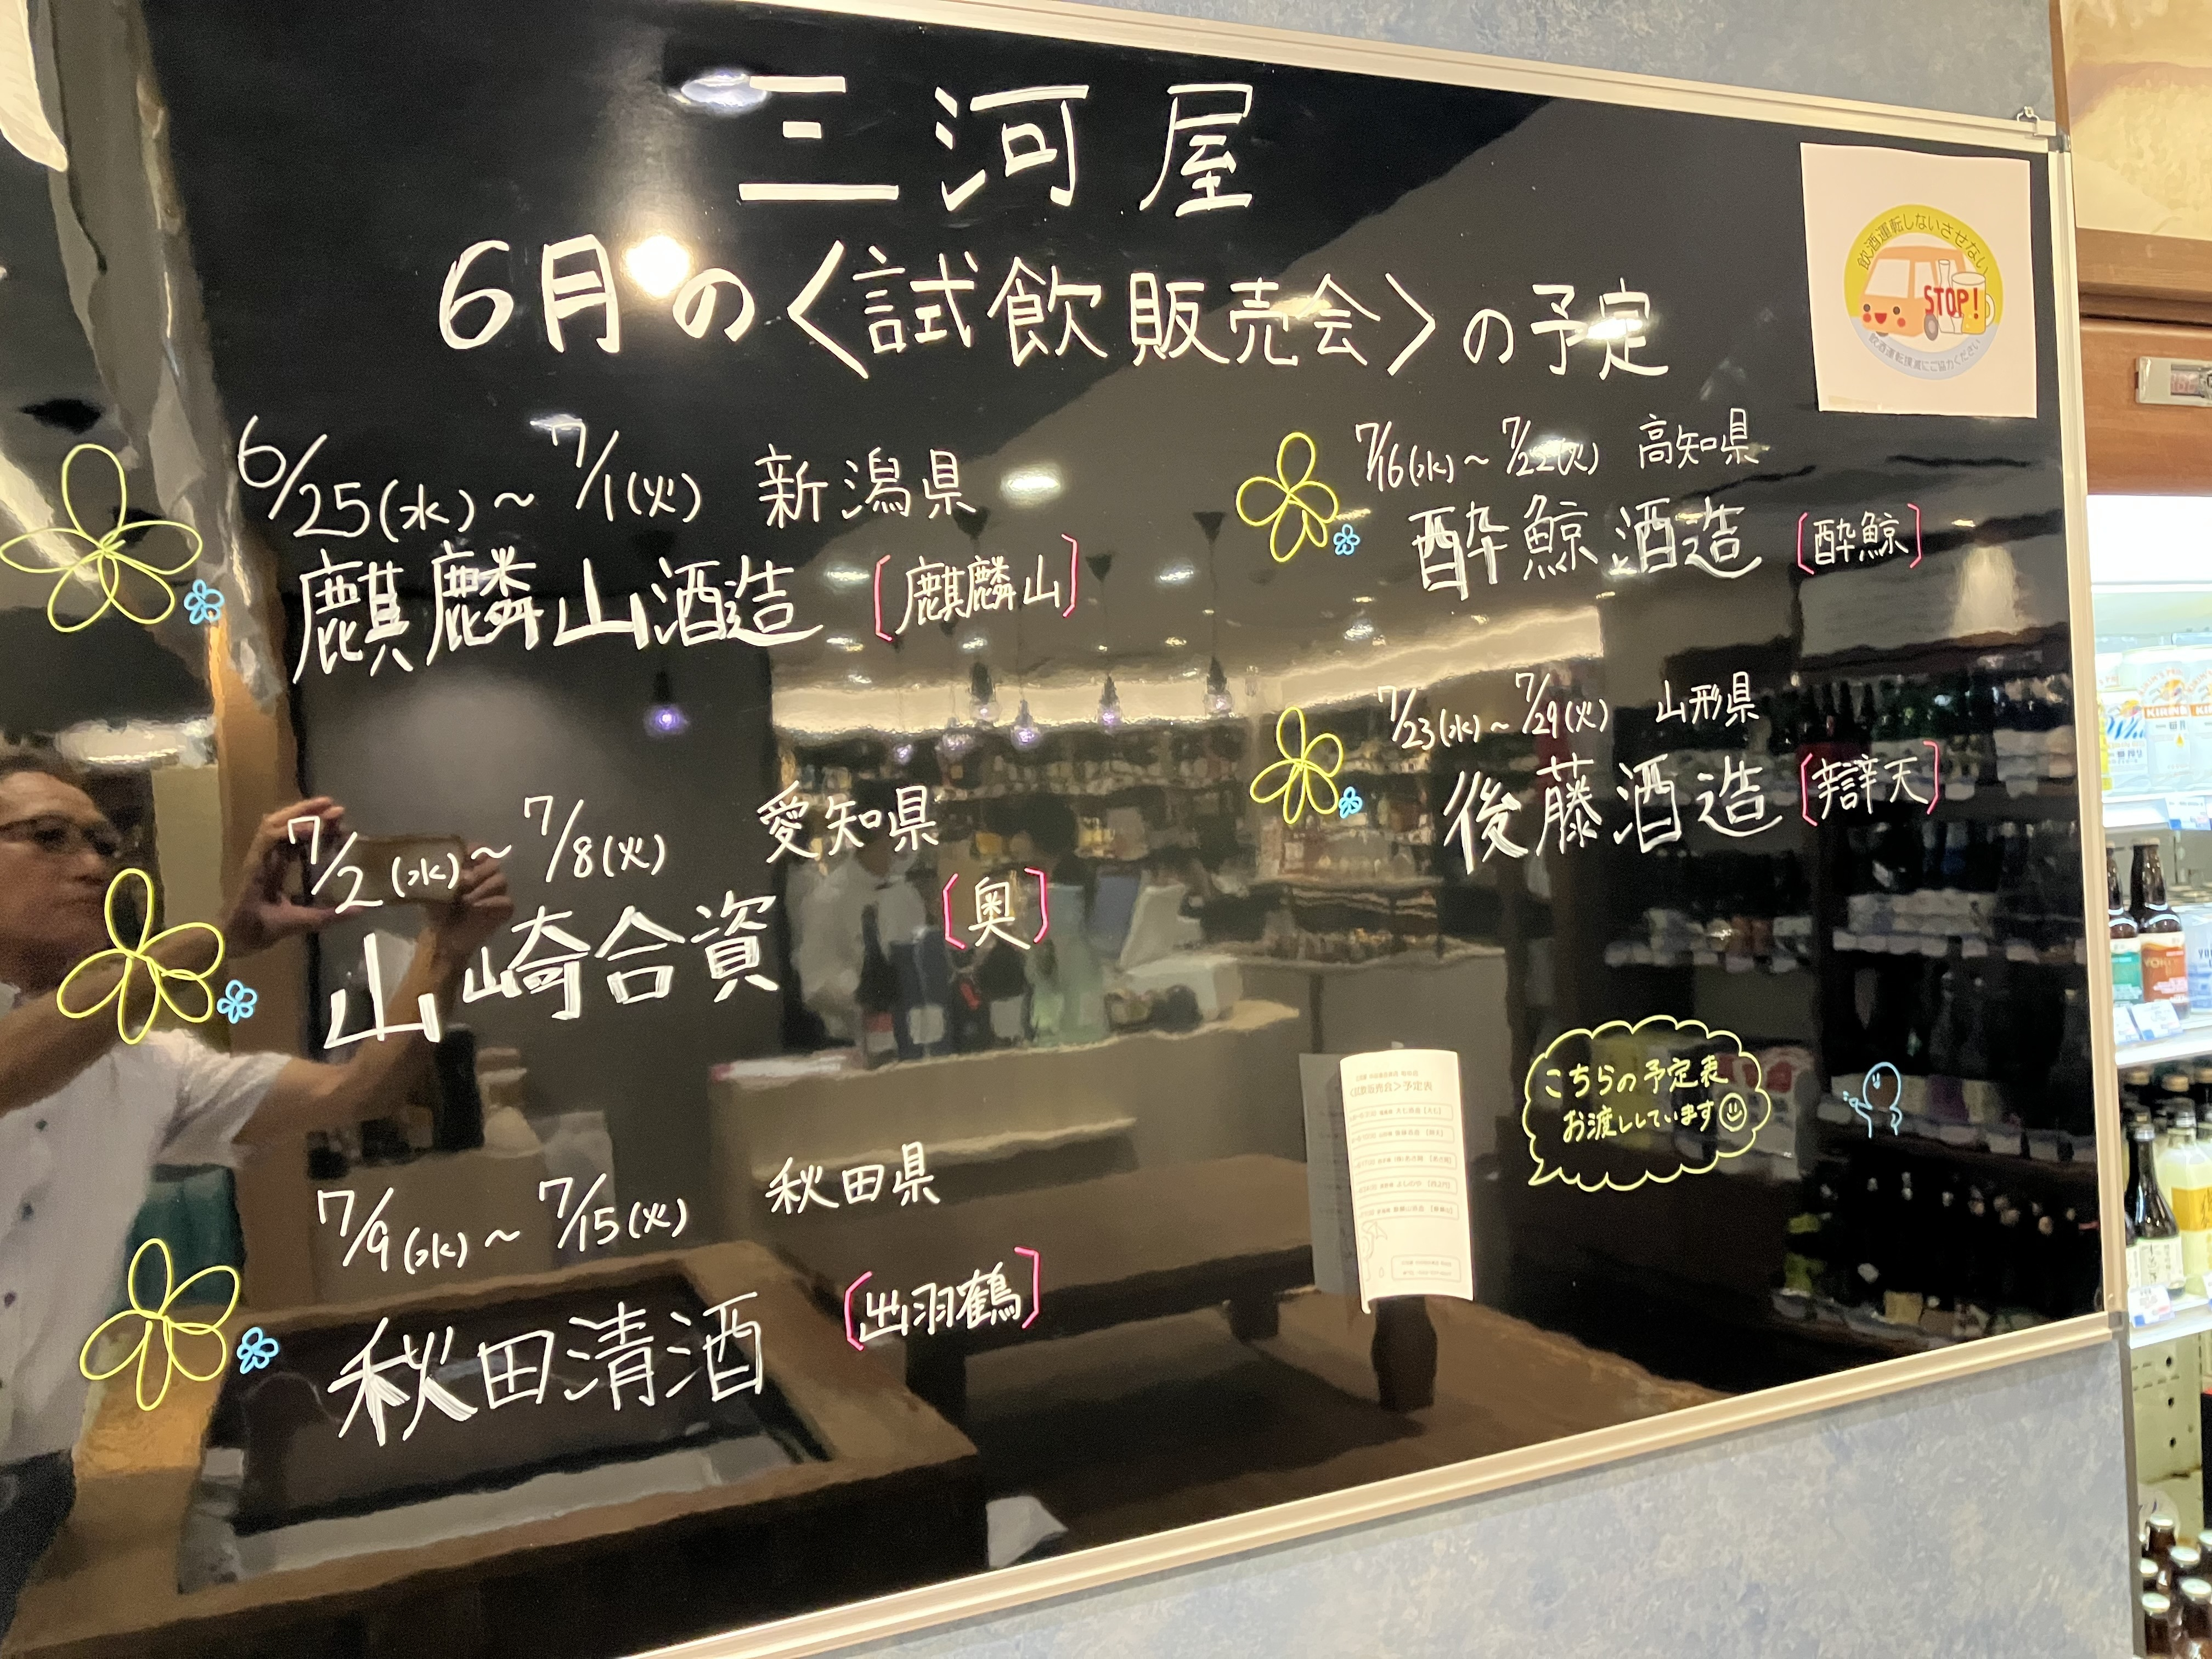 三河屋
6月の〈試飲販売会〉の予定
飲酒運転しないさせない
STOP!
飲酒運転撲滅にご協力ください
6/25(水)～7/1(火) 新潟県
麒麟山酒造 [麒麟山]
7/2(水)～7/8(火) 愛知県
山崎合資 [奥]
7/9(水)～7/15(火) 秋田県
秋田清酒 [出羽鶴]
7/16(水)～7/22(火) 高知県
酔鯨酒造 [酔鯨]
7/23(水)～7/29(火) 山形県
後藤酒造 [辯天]
こちらの予定表
お渡ししています
<試飲販売会>予定表
KIRIN